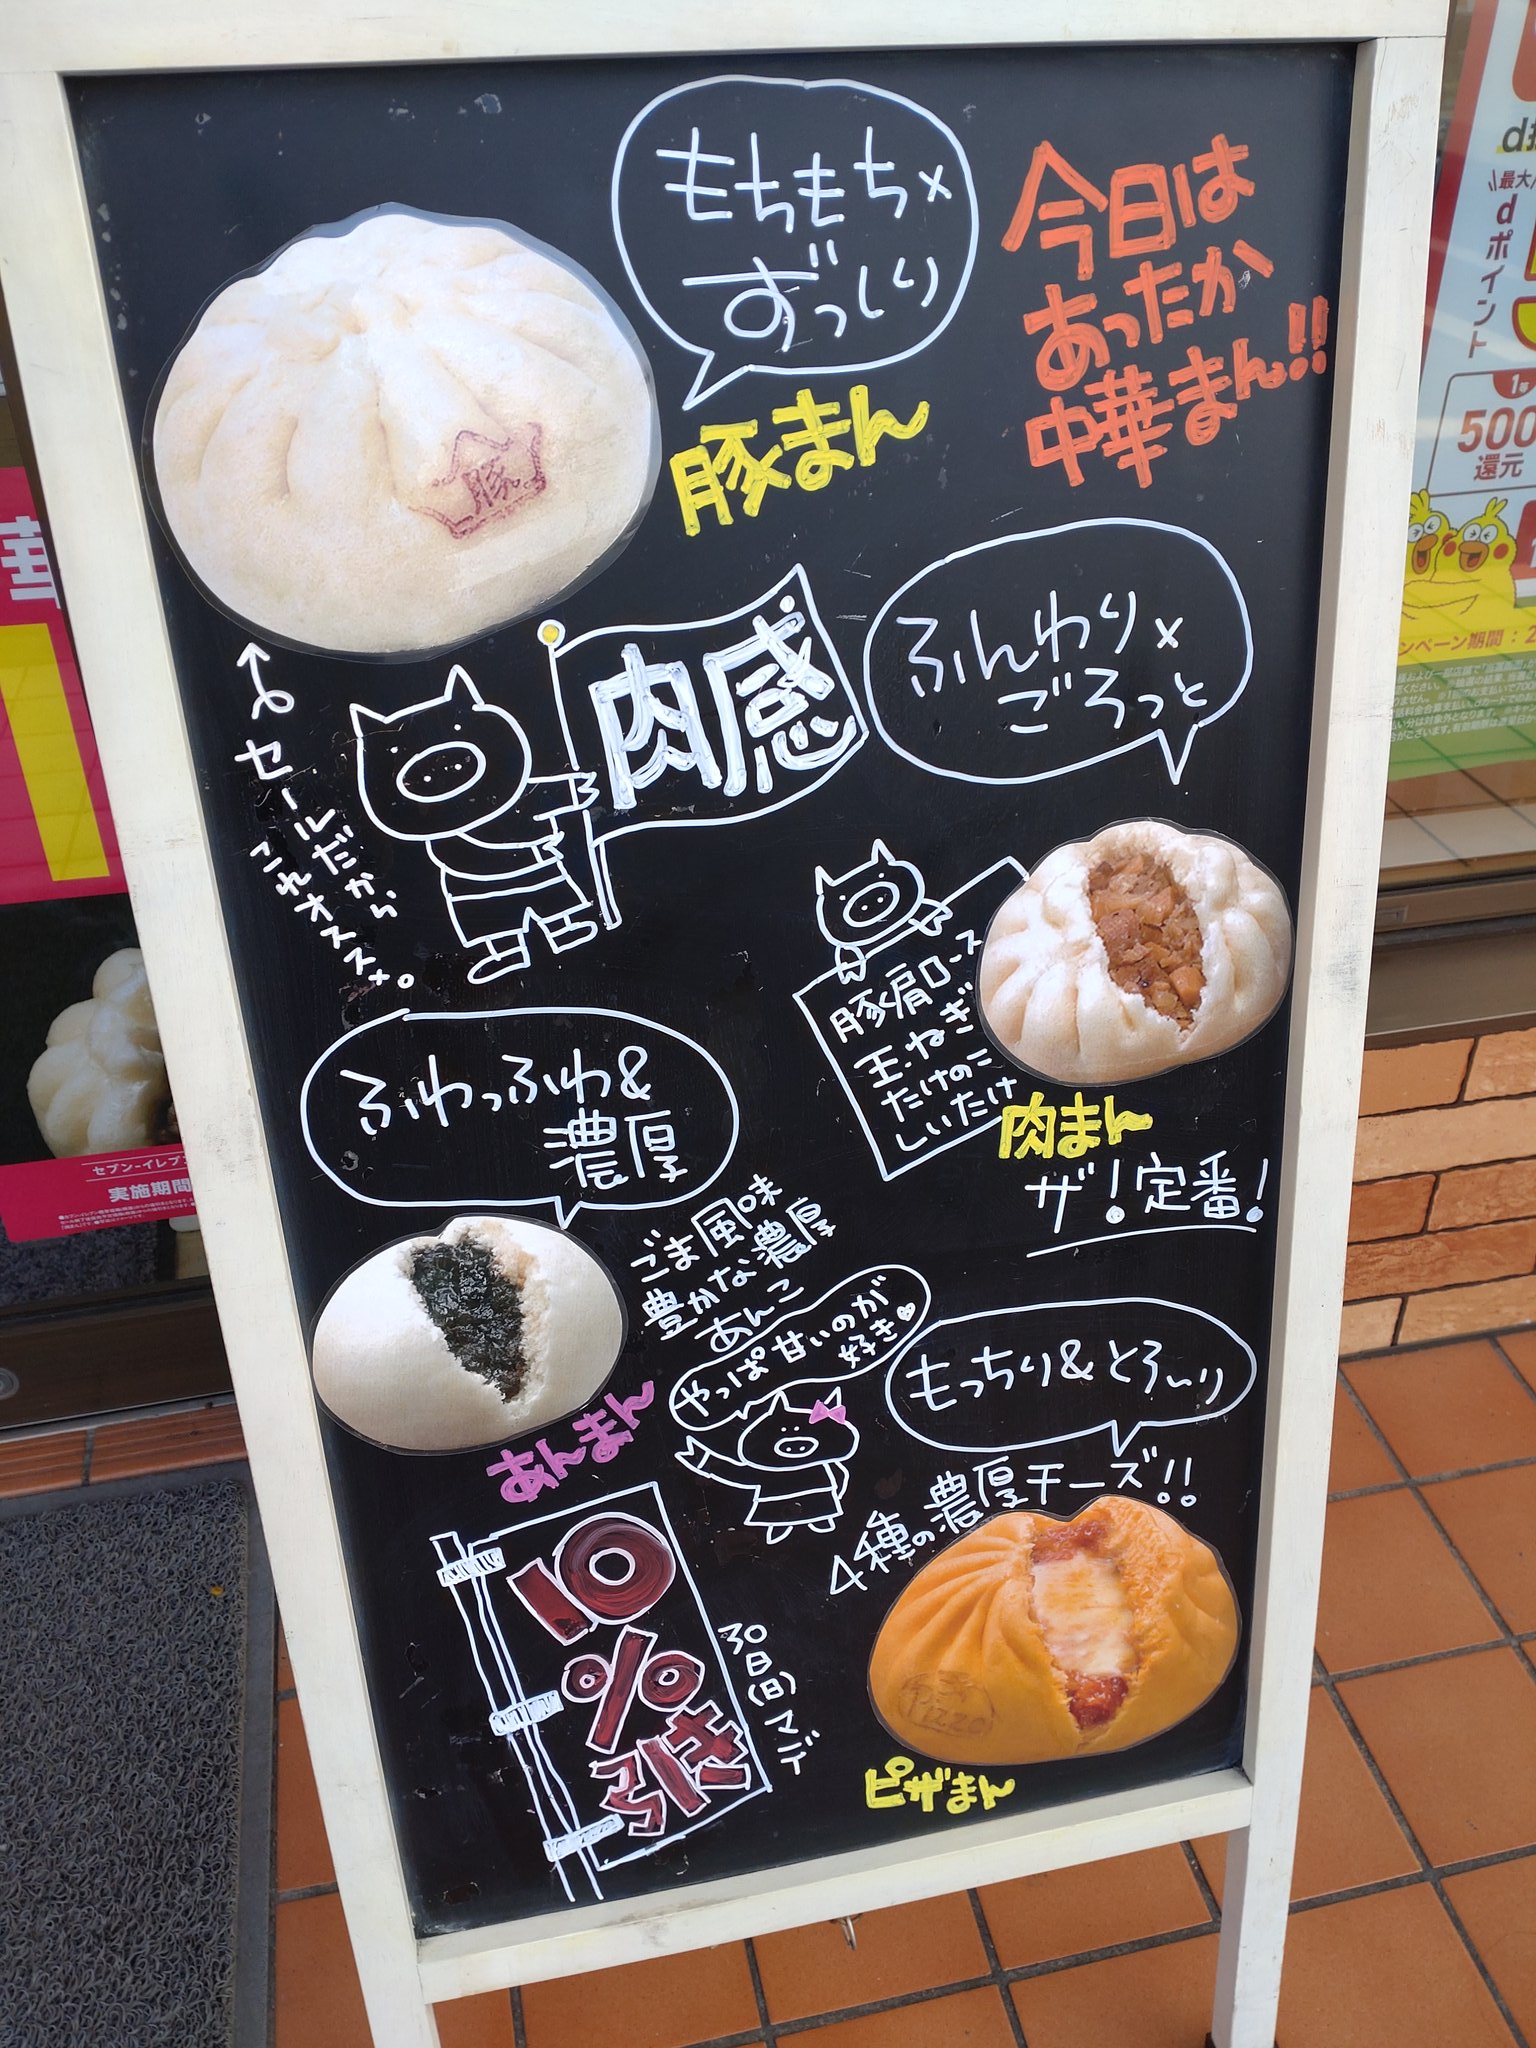 今日は
あったか
中華まん!!
もちもち×
ずっしり
豚まん
豚
肉感
セールだから
これオススメ。
ふんわり×
ごろっと
豚肩ロース
玉ねぎ
たけのこ
しいたけ
肉まん
ザ!定番!
ふわっふわ&
濃厚
ごま風味
豊かな濃厚
あんこ
あんまん
やっぱ甘いのが
好き♡
もっちり&とろ〜り
4種の濃厚チーズ!!
Pizza
ピザまん
10
%
引き
30日(日)マデ
華
セブン-イレブン
実施期間
最大
dポイント
500
還元
ンペーン期間:2